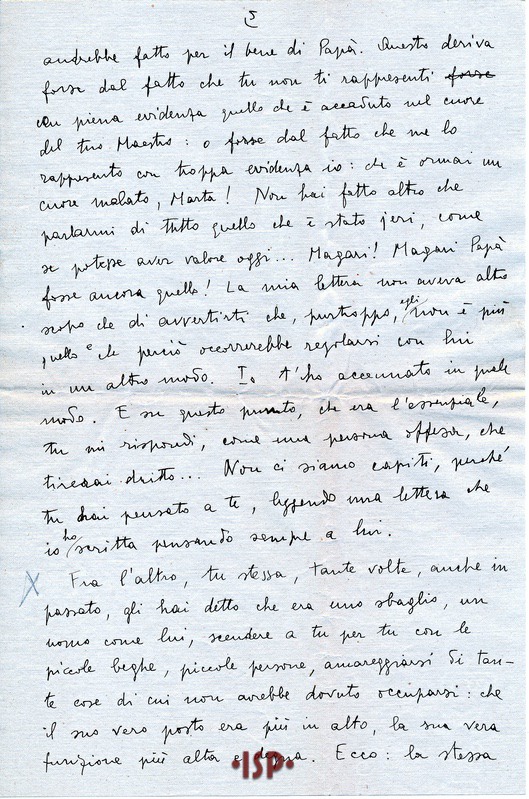 5
andrebbe fatto per il bene di Papà. Questo deriva
forse dal fatto che tu non ti rappresenti forse
con piena evidenza quello che è accaduto nel cuore
del tuo Maestro: o forse dal fatto che me lo
rappresento con troppa evidenza io: che è ormai un
cuore malato, Marta! Non hai fatto altro che
parlarmi di tutto quello che è stato jeri, come
se potesse aver valore oggi... Magari! Magari Papà
fosse ancora quello! La mia lettera non aveva altro
scopo che di avvertirti che, purtroppo, egli non è più
quello e che perciò occorrerebbe regolarsi con lui
in un altro modo. Io t'ho accennato in quale
modo. E su questo punto, che era l'essenziale,
tu mi rispondi, come una persona offesa, che
tirerai dritto... Non ci siamo capiti, perché
tu hai pensato a te, leggendo una lettera che
io ho scritta pensando sempre a lui.
Fra l'altro, tu stessa, tante volte, anche in
passato, gli hai detto che era uno sbaglio, un
uomo come lui, scendere a tu per tu con le
piccole beghe, piccole persone, amareggiarsi di tan-
te cose di cui non avrebbe dovuto occuparsi: che
il suo vero posto era più in alto, la sua vera
funzione più alta e degna. Ecco: la stessa
•ISP•